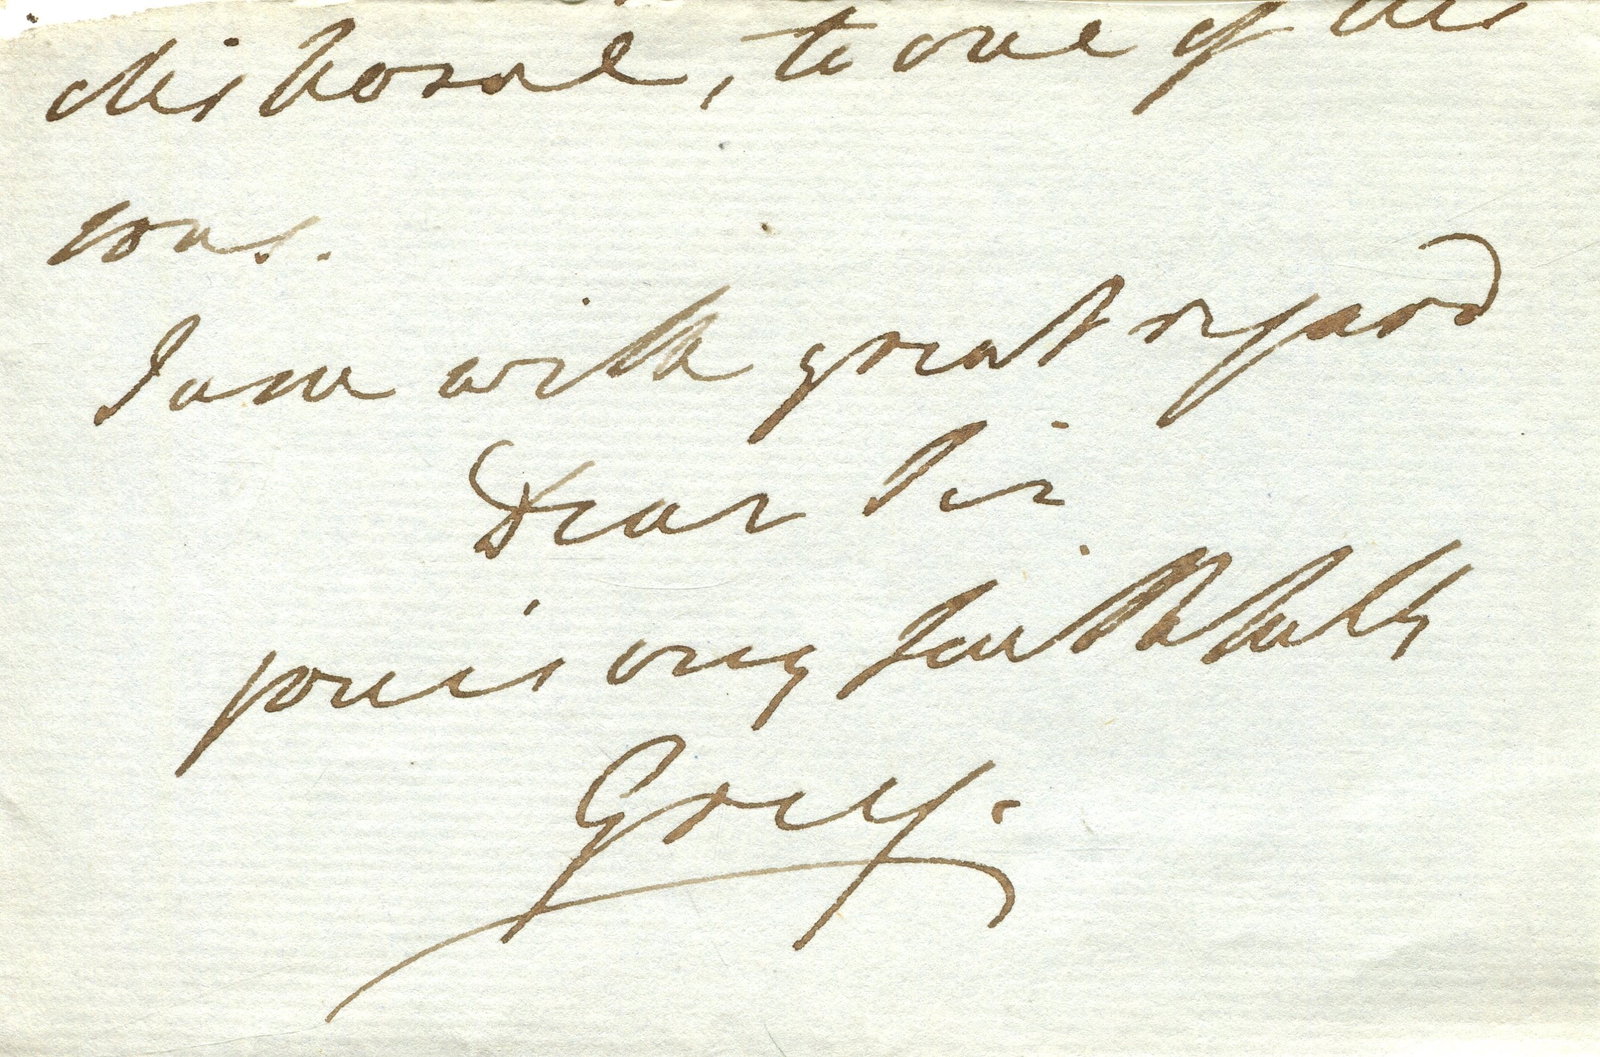 disposal, to one of his
sons.
I am with great regard
Dear Sir
yours very faithfully
Grey.